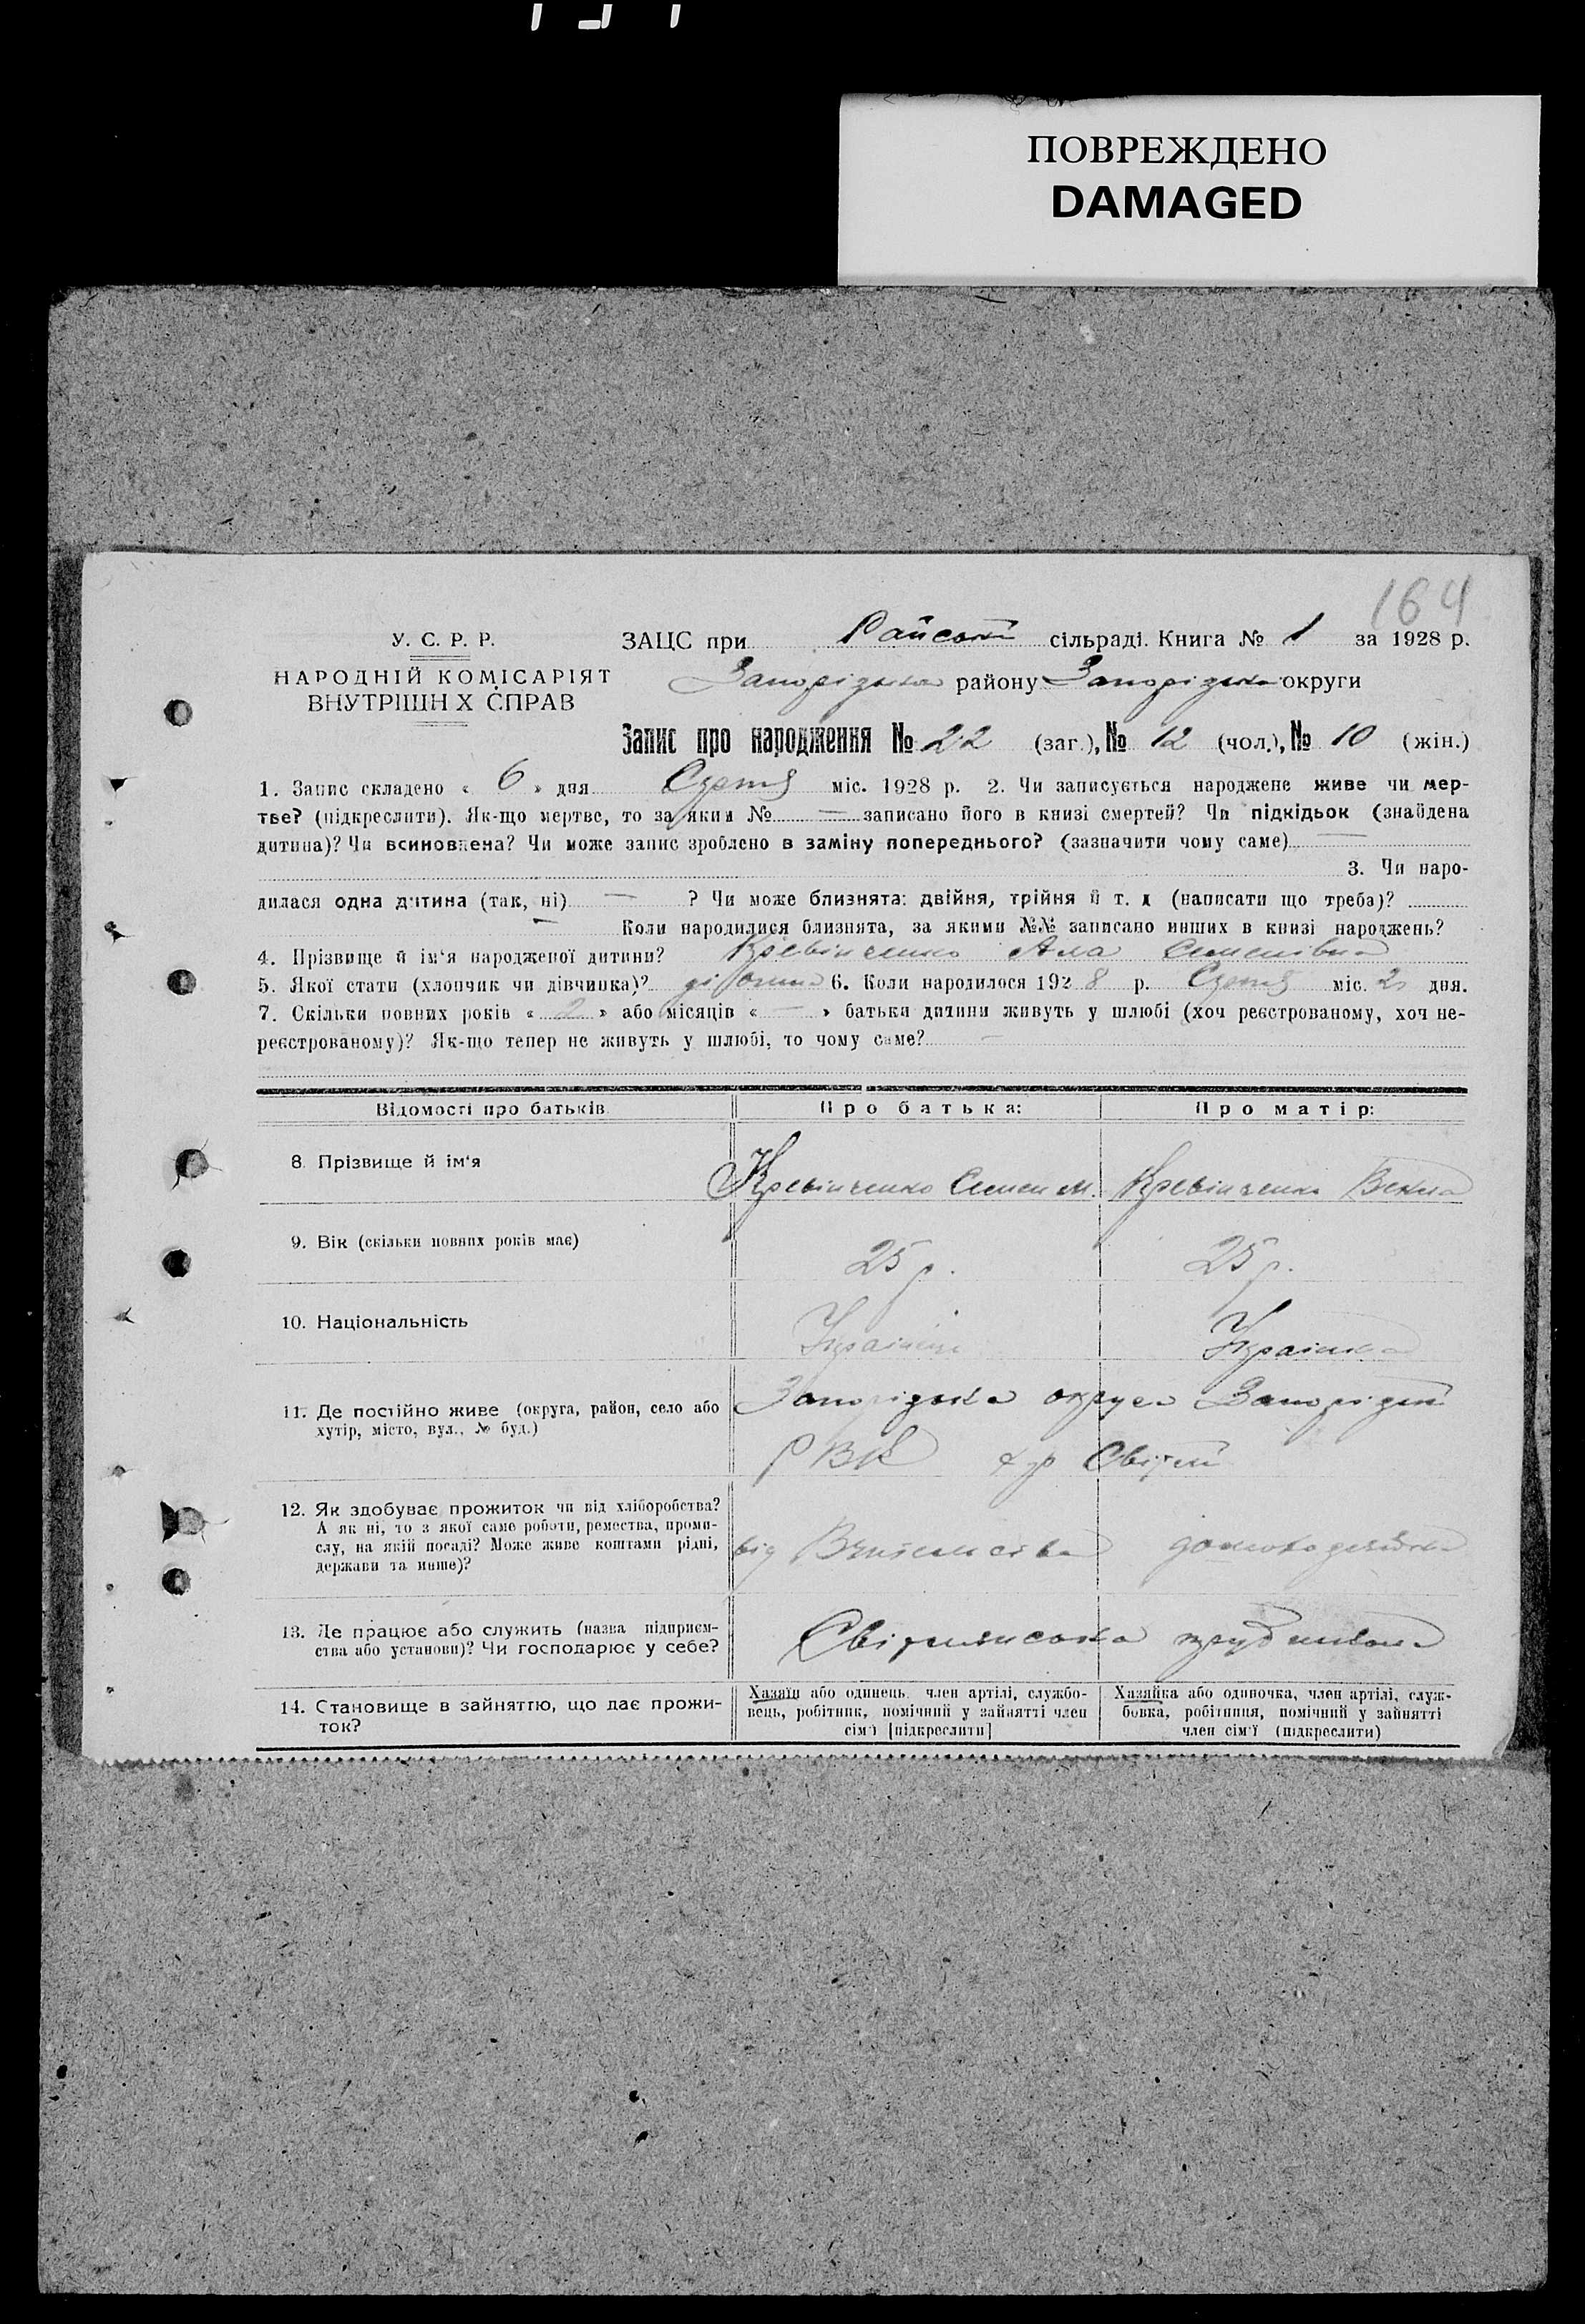 ПОВРЕЖДЕНО
DAMAGED
164
У. С. Р. Р.
НАРОДНІЙ КОМІСАРІЯТ
ВНУТРІШН Х СПРАВ
ЗАЦС при Райській сільраді. Книга № 1 за 1928 р.
Запорізького району Запорізької округи
Запис про народження № 22 (заг.), № 12 (чол.), № 10 (жін.)
1. Запис складено « 6 » дня Серпня міс. 1928 р. 2. Чи записується народжене живе чи мер-
тве? (підкреслити). Як-що мертве, то за яким № — записано його в книзі смертей? Чи підкідьок (знайдена
дитина)? Чи всиновлена? Чи може запис зроблено в заміну попереднього? (зазначити чому саме) —
3. Чи наро-
дилася одна дитина (так, ні) — ? Чи може близнята: двійня, трійня й т. д (написати що треба)?
— Коли народилися близнята, за якими №№ записано инших в книзі народжень?
4. Прізвище й ім'я народженої дитини? Кревінченко Ала Семенівна
5. Якої стати (хлопчик чи дівчинка)? 6. Коли народилося 1928 р. Серпня міс. 2 дня.
7. Скільки повних років « 2 » або місяців « — » батьки дитини живуть у шлюбі (хоч реєстрованому, хоч не-
реєстрованому)? Як-що тепер не живуть у шлюбі, то чому саме? —
Відомості про батьків
Про батька:
Про матір:
8. Прізвище й ім'я
Кревінченко Семен М.
Кревінченко Векла
9. Вік (скільки повних років має)
25 р.
25 р.
10. Національність
Українець
Українка
11. Де постійно живе (округа, район, село або
хутір, місто, вул., № буд.)
Запорізька округа Запорізький
РВК хур
12. Як здобуває прожиток чи від хліборобства?
А як ні, то з якої саме роботи, ремества, проми-
слу, на якій посаді? Може живе коштами рідні,
держави та инше)?
від Вчительства
домохозяйка
13. Де працює або служить (назва підприєм-
ства або установи)? Чи господарює у себе?
трудшкола
14. Становище в зайняттю, що дає прожи-
ток?
Хазяїн або одинець, член артілі, службо-
вець, робітник, помічний у зайнятті член
сім'ї [підкреслити]
Хазяйка або одиночка, член артілі, служ-
бовка, робітниця, помічний у зайнятті
член сім'ї (підкреслити)